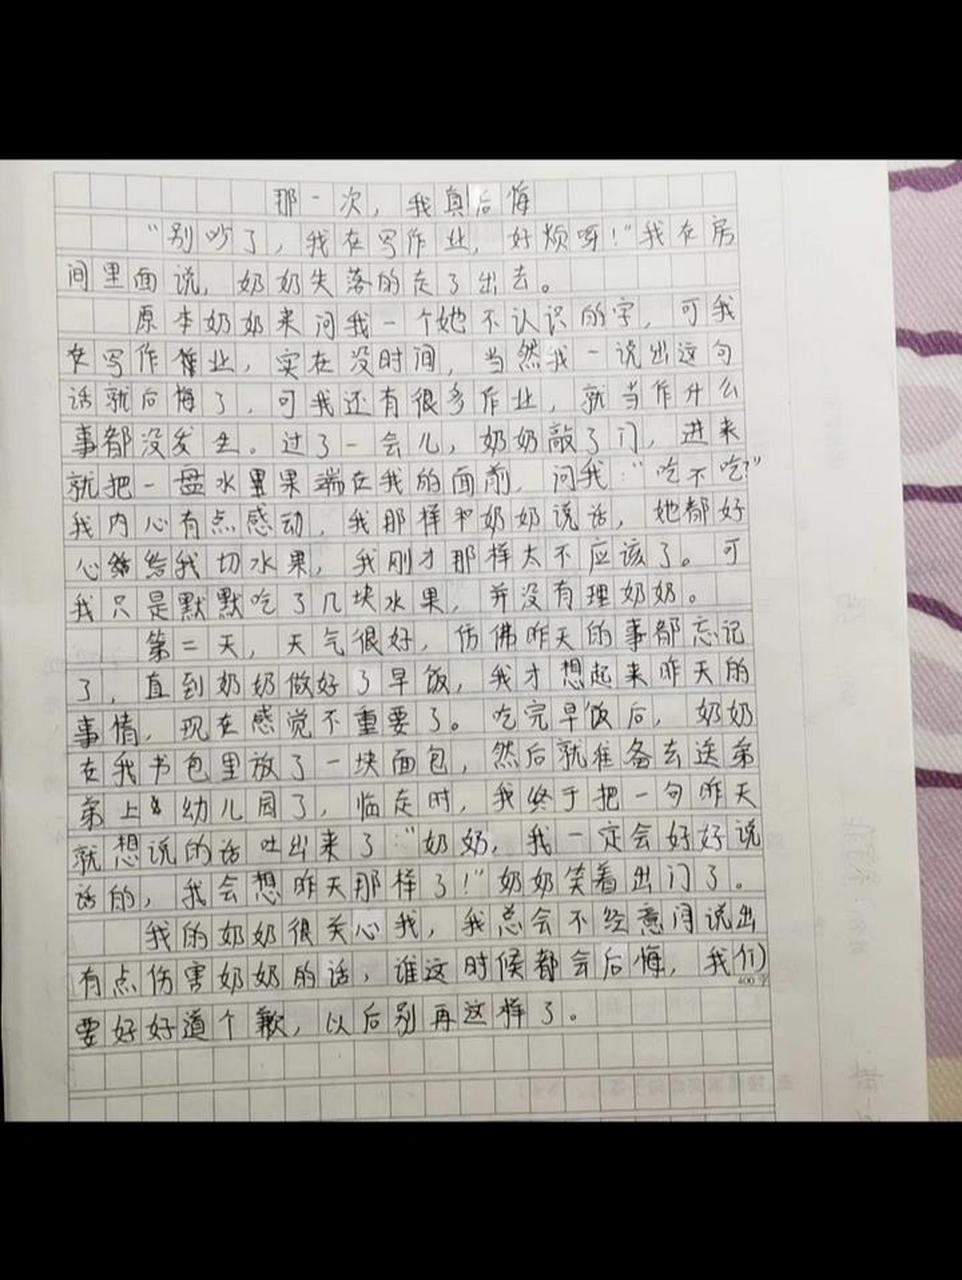 那一次，我真后悔
“别吵了，我在写作业，好烦呀！”我在房
间里面说，奶奶失落的走了出去。
原本奶奶来问我一个她不认识的字，可我
在写作业，实在没时间，当然我一说出这句
话就后悔了，可我还有很多作业，就当作什么
事都没发生。过了一会儿，奶奶敲了门，进来
就把一盘水果端在我的面前，问我：“吃不吃？”
我内心有点感动，我那样和奶奶说话，她都好
心给我切水果，我刚才那样太不应该了。可
我只是默默吃了几块水果，并没有理奶奶。
第二天，天气很好，仿佛昨天的事都忘记
了，直到奶奶做好了早饭，我才想起来昨天的
事情，现在感觉不重要了。吃完早饭后，奶奶
在我书包里放了一块面包，然后就准备去送弟
弟上幼儿园了，临走时，我终于把一句昨天
就想说的话吐出来了：“奶奶，我一定会好好说
话的，我会想昨天那样了！”奶奶笑着出门了。
我的奶奶很关心我，我总会不经意间说出
有点伤害奶奶的话，谁这时候都会后悔，我们
400字
要好好道个歉，以后别再这样了。